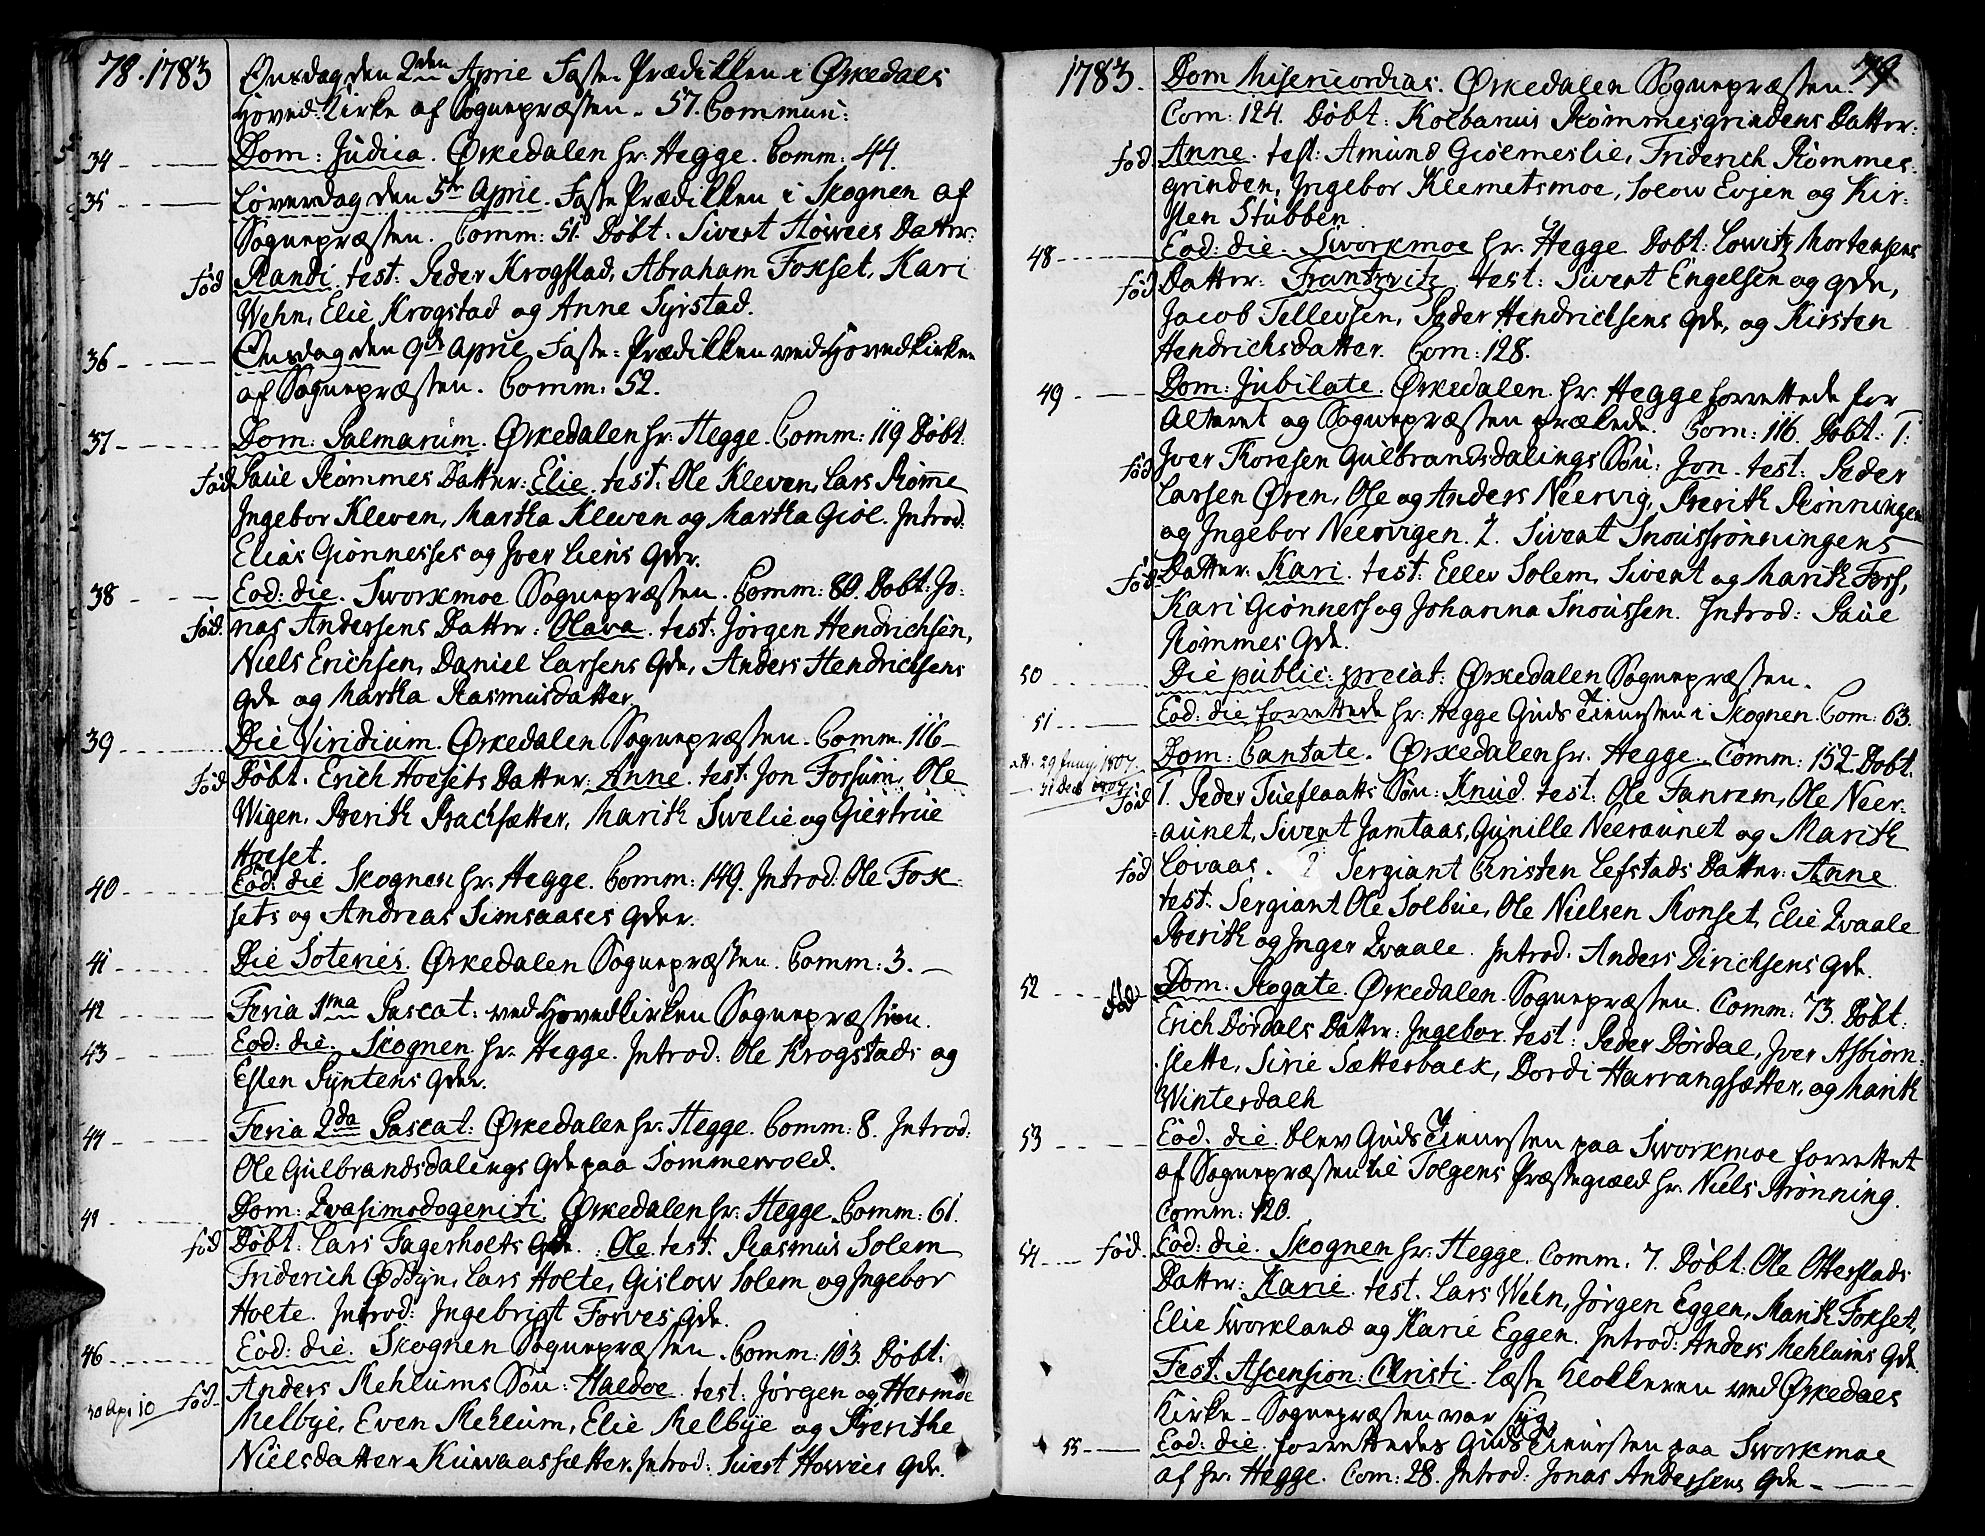 78. 1783
Onsdag den 2den April Faste-Prædikken i Ørkedals
Hoved-Kirke af Sognepræsten. 57. Communi:
34 Dom: Judica. Ørkedalen hr: Hegge. Comm: 44.
35 Løverdag den 5te April. Faste Prædikken i Skognen af
Sognepræsten. Comm: 51. Døbt. Sivert Howies Datter:
fød Randi. test: Peder Krogstad, Abraham Foxset, Kari
Wehn, Elie Krogstad og Anne Syrstad.
36 Onsdag den 9de April Faste-Prædikken ved Hovedkirken
af Sognepræsten. Comm: 52.
37 Dom: Palmarum. Ørkedalen hr: Hegge. Comm: 119 Døbt.
fød Paul Rømmes Datter: Elie. test: Ole Kleven, Lars Rømme
Ingebor Kleven, Martha Kleven og Martha Giøl. Introd:
Elias Giønnesses og Iver Liens Qder.
38 Eod: die. Sworkmoe Sognepræsten. Comm: 80. Døbt: Jo:
fød. nas Andersens Datter: Olava. test: Jørgen Hendrichsen,
Niels Erichsen, Daniel Larsens Qde, Anders Hendrichsens
Qde og Martha Rasmusdatter.
39 Die Viridium. Ørkedalen Sognepræsten. Comm. 116
fød Døbt. Erich Hoesets Datter: Anne. test: Jon Forsum, Ole
Wigen, Berith Brachsætter, Marith Swelie og Giertrue
Hoeset.
40 Eod: die Skognen hr. Hegge. Comm: 149. Introd: Ole Fox
sets og Andreas Simsaases Qder.
41 Die Soteries. Ørkedalen Sognepræsten. Comm: 3.
42 Feria 1ma Pascat: ved Hovedkirken Sognepræsten.
43 Eod: die. Skognen hr. Hegge. Introd: Ole Krogstads og
Esten Syntens Qder.
44 Feria 2da Pascat: Ørkedalen hr: Hegge. Comm: 8. Introd:
Ole Gulbrandsdalings Qde paa Sommervold.
Dom: Qvasimodogeniti Ørkedalen hr: Hegge. Comm: 61.
fød Døbt: Lars Fagerholts : Ole. test. Rasmus Solem
Friderich Oddyn, Lars Holte, Gislow Solem og Ingebor
Holte. Introd: Ingebrigt Forves Qde.
46 Eod: die. Skognen Sognepræsten. Comm: 103. Døbt:
fød Anders Mehlums Søn: Haldoe. test: Jørgen og
Melbye, Even Mehlum, Elie Melbye og Berithe
Nielsdatter Kuwaassætter. Introd: Sivert Howies Qde.
1783. 79
Dom Misericordias. Ørkedalen Sognepræsten.
Com: 124. Døbt: Kolbanus Rømmesgrindens Datter:
fød Anne. test: Amund Giølmeslie, Friderich Rømmes
grinden, Ingebor Klemetsmoe, Solow Evjen og Kir
sten Stubben
48 Eod: die. Sworkmoe hr. Hegge Døbt: Lowitz Mortensens
fød Datter: test: Sivert Engelsen og Qde,
Jacob Tellevsen, Peder Hendrichsens Qde, og Kirsten
Hendrichsdatter. Com: 128.
49 Dom: Jubilate. Ørkedalen hr: Hegge forrettede for
Alteret og Sognepræsten prækede. Com: 116. Døbt: 1:
fød Iver Toresen Gulbrandsdalings Søn: Jon. test: Peder
Larsen Øren, Ole og Anders Neervig, Berith Rønningen
og Ingebor Neervigen. 2. Sivert Snoussrønningens
fød Datter: Kari. test: Ellev Solem, Sivert og Marith Foss,
Kari Giønness og Johanna Snoussen. Introd: Paul
Rømmes Qde.
50 Die public: precat: Ørkedalen Sognepræsten.
51 Eod: die forrettede hr: Hegge Guds Tienesten i Skognen. Com: 63.
Dom: Cantate. Ørkedalen hr. Hegge. Comm: 152. Døbt.
fød 1. Peder Tueflaatts Søn: Knud. test: Ole Fanrem, Ole Neer
aunet, Sivert Jamtaas, Gunille Neeraunet og Marith
fød Lovaas. 2. Sergiant Christen Lefstads Datter: Anne
test: Sergiant Ole Solbue, Ole Nielsen Monset, Elie Qvaale
Berith og Inger Qvaale. Introd: Anders Dirichsens Qde.
52 fød Dom. Rogate. Ørkedalen Sognepræsten. Comm: 73. Døbt.
Erich Dørdals Datter: Ingebor. test: Peder Dørdal, Iver Asbiørn
slette, Sirie Sætterback, Dordi Harrangsætter, og Marith
Winterdaeh
53 Eod. die: blev Guds Tienesten paa Sworkmoe forrettet
af Sognepræsten til Tolgens Præstegiæld hr. Niels Brønning.
Comm: 120.
54 fød. Eod: die. Skognen hr. Hegge. Comm. 7. Døbt: Ole Otterstads
Datter: Karie. test. Lars Wehn, Jørgen Eggen, Marith Foxset,
Elie Sworkland og Karie Eggen. Introd: Anders Mehlums Qde.
Fest: Ascension: Christi. læste Klokkeren ved Ørkedals
Kirke - Sognepræsten var syg.
55 Eod: die. forrettedes Guds Tienesten paa Sworkmoe
af hr. Hegge. Com: 28. Introd: Jonas Andersens Qde